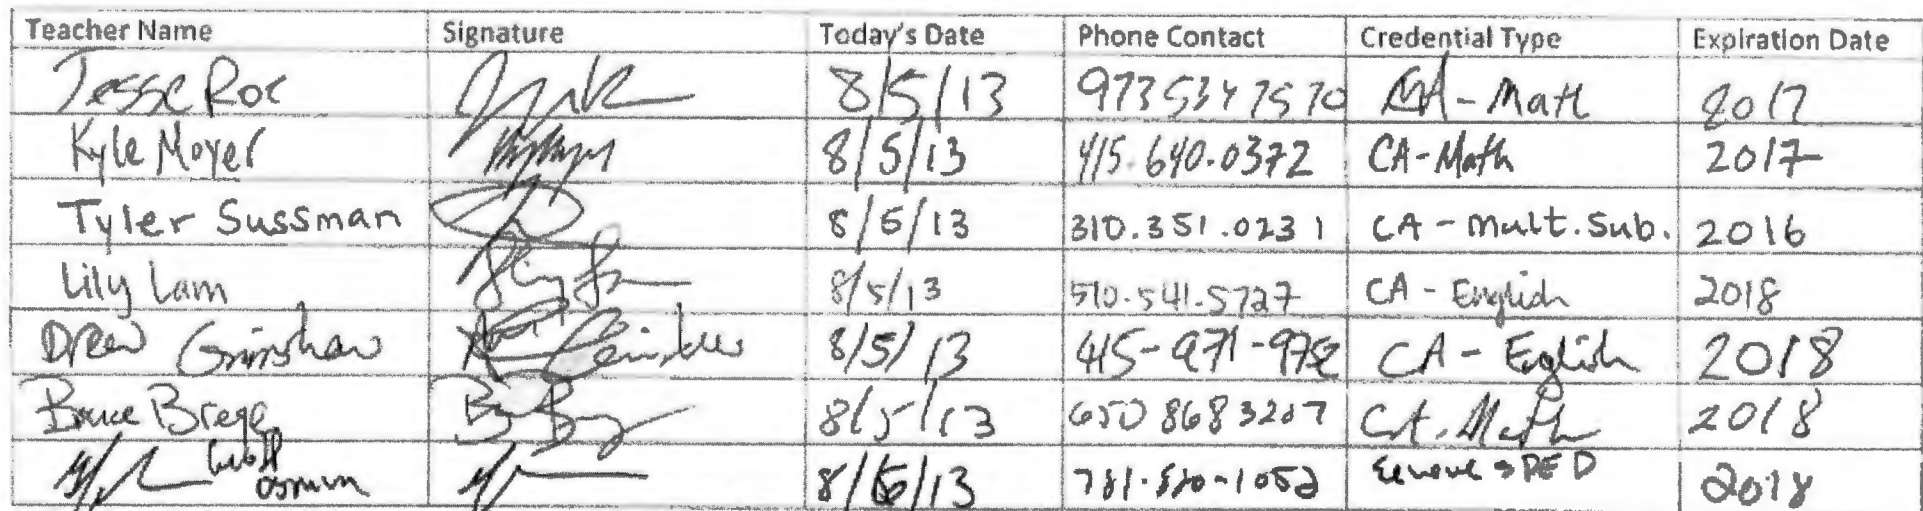 Teacher Name Signature Today's Date Phone Contact Credential Type Expiration Date
Jesse Roe 8/5/13 9735347570 CA - Math 2017
Kyle Moyer 8/5/13 415.640.0372 CA-Math 2017
Tyler Sussman 8/5/13 310.351.0231 CA - Mult. Sub. 2016
Lily Lam 8/5/13 510.541.5727 CA - English 2018
Drew Grimshaw 8/5/13 415-971-9752 CA - English 2018
Bruce Brege 8/5/13 650 868 3207 CA. Math 2018
8/5/13 SPED 2018